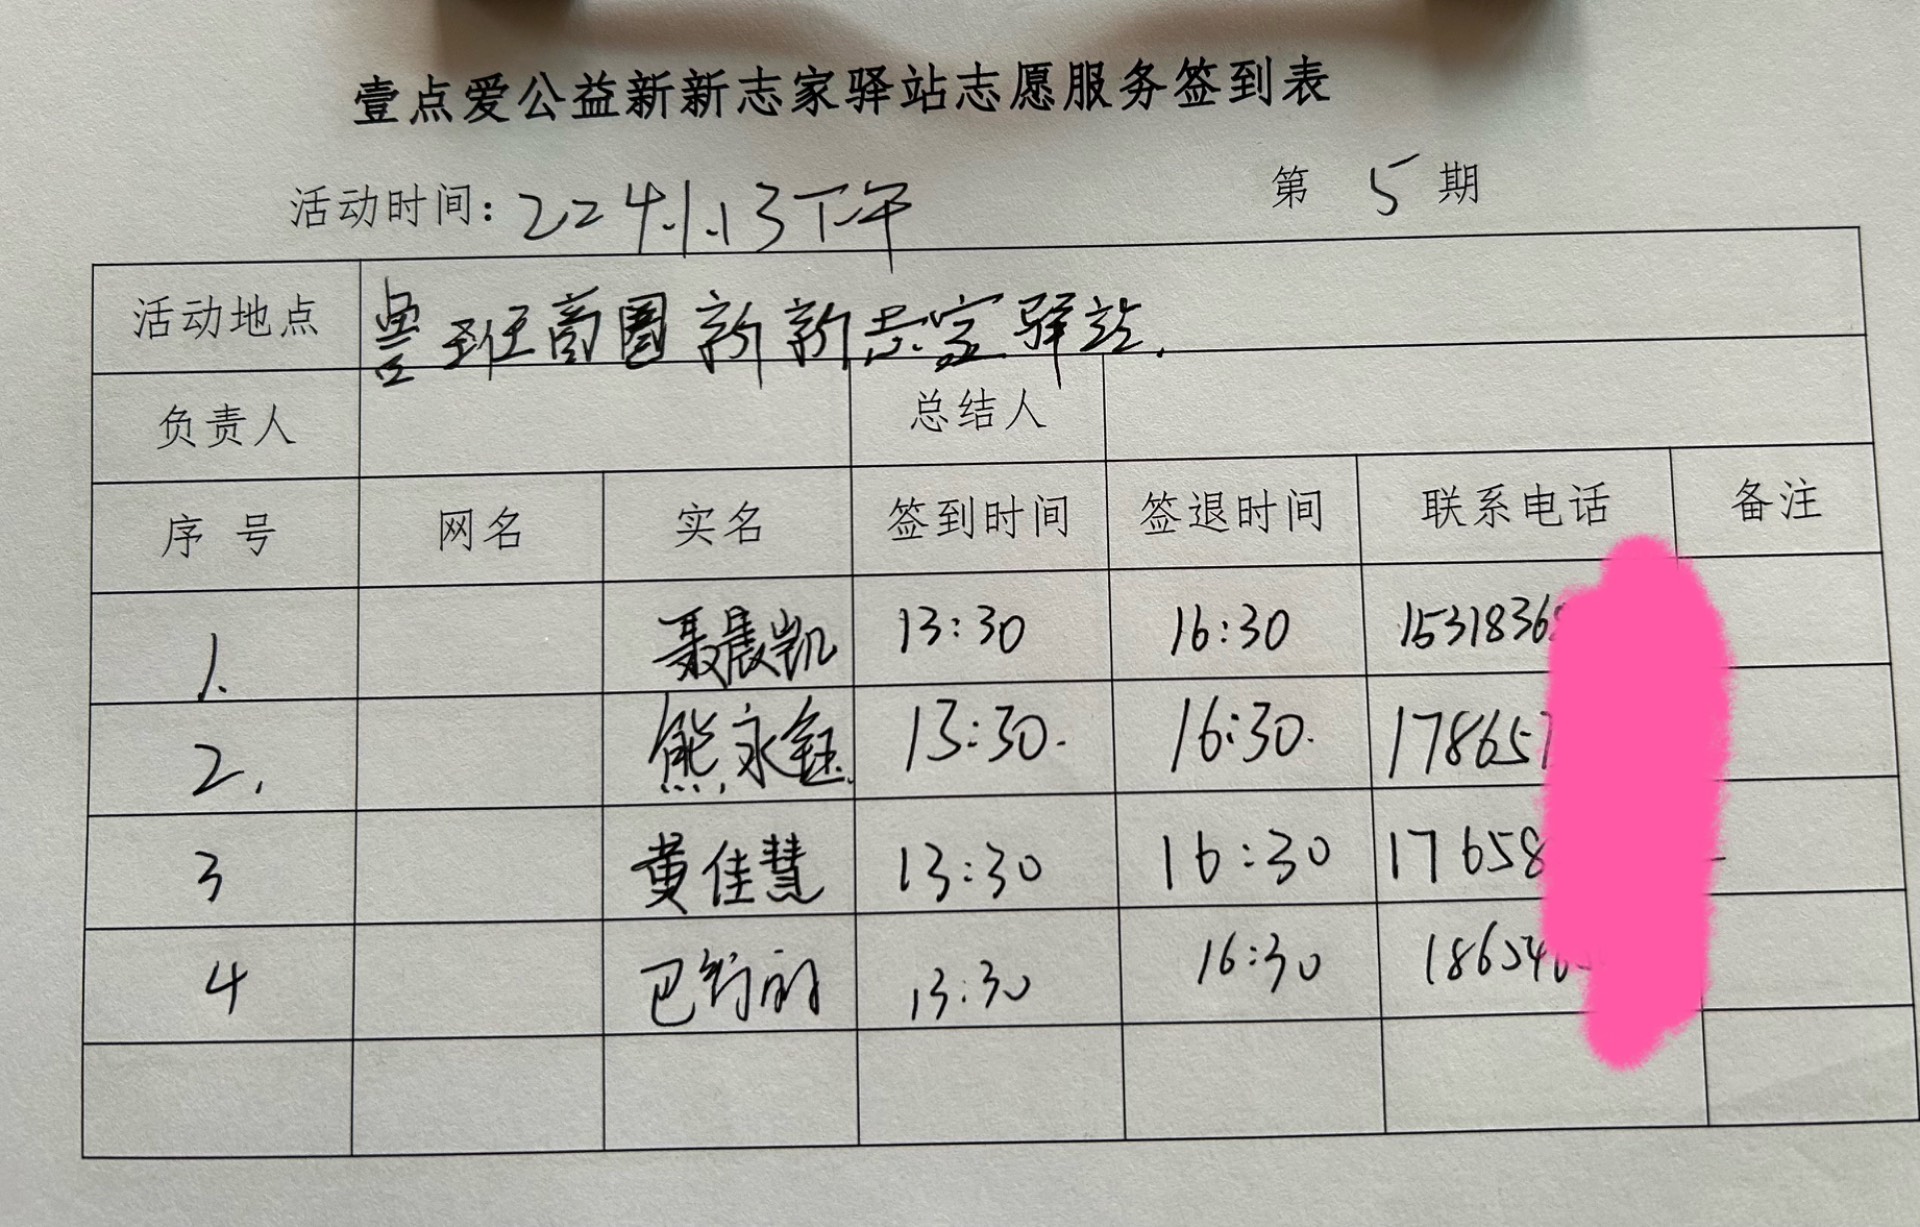 壹点爱公益新新志家驿站志愿服务签到表
活动时间: 224.1.13下午 第 5 期
活动地点 鲁班商圈新新志家驿站.
负责人 总结人
序 号 网名 实名 签到时间 签退时间 联系电话 备注
1. 聂晨凯 13:30 16:30 1531836
2. 熊永钰. 13:30. 16:30. 17865
3 黄佳慧 13:30 16:30 17658
4 巴 13:30 16:30 18654